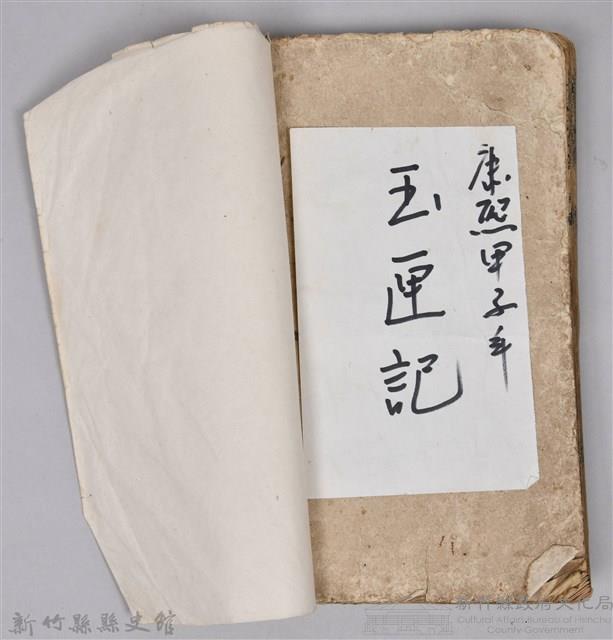 康熙甲子年
玉匣記
新竹縣縣史館
新竹縣政府文化局
Cultural Affairs Bureau of Hsinchu
County Government